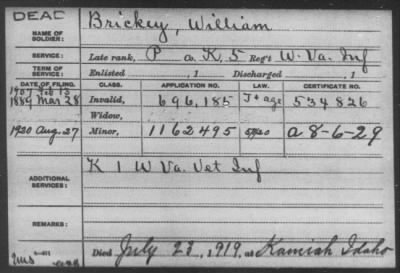 DEAD
NAME OF SOLDIER: Brickey, William
SERVICE: Late rank, P Co. K, 5 Reg't W. Va. Inf
TERM OF SERVICE: Enlisted , 1 Discharged , 1
DATE OF FILING. CLASS. APPLICATION NO. LAW. CERTIFICATE NO.
1907 Feb 13
1889 Mar 28 Invalid, 696,185 J + age 534826
Widow,
1920 Aug. 27 Minor, 1162495 a 8-6-29
ADDITIONAL SERVICES: K 1 W Va. Vet Inf
REMARKS:
Died July 23, 1919, at Kamiah Idaho